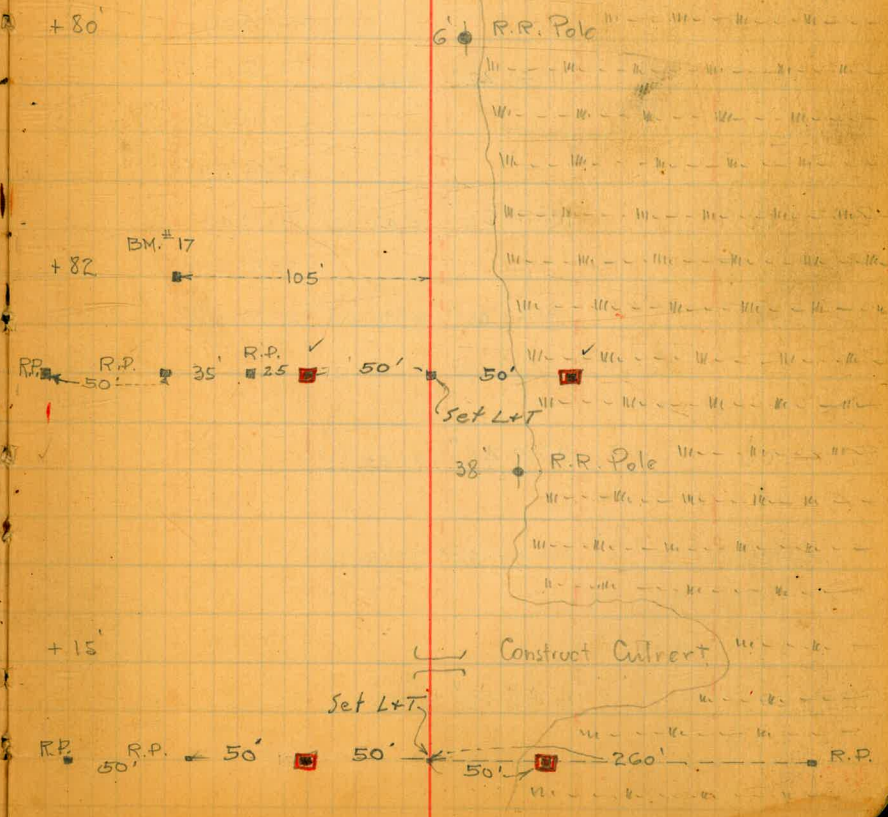 +80' 6' R.R. Pole
BM. #17
+82 105'
R.P. R.P. R.P. ✓ ✓
50' 35' 25 50' 50'
Set L+T
38' R.R. Pole
+15' Construct Culvert
Set L+T
R.P. R.P. 50' 50' 260' R.P.
50' 50'